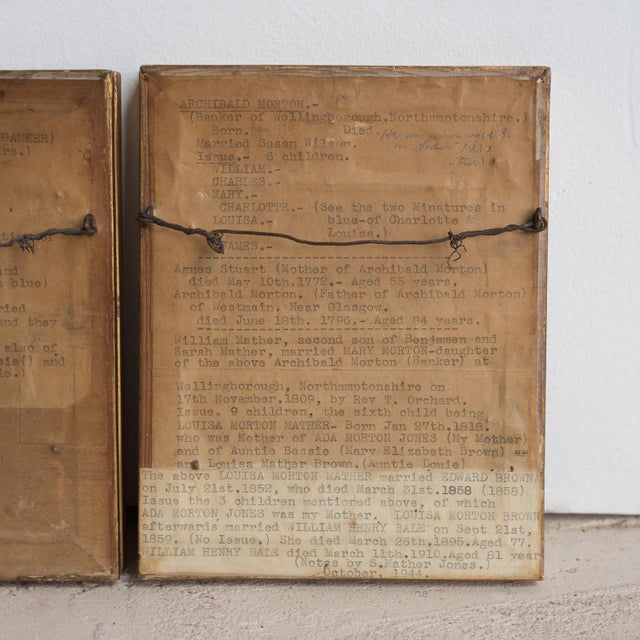 BANKER)
re.)
ting of
and
n blue)
ried
and they
also of
sie() and
e.)
ARCHIBALD MORTON.-
(Banker of Wellingborough.Northamptonshire.)
Born. Died.
Married Susan Wilson.
Issue.- 6 children.
WILLIAM.-
CHARLES.-
MARY.-
CHARLOTTE.- (See the two Minatures in
LOUISA.- blue-of Charlotte &
Louisa.)
JAMES.-
Agnes Stuart (Mother of Archibald Morton)
died May 10th.1772.- Aged 55 years.
Archibald Morton. (Father of Archibald Morton)
of Westmain. Near Glasgow.
died June 18th. 1796.- Aged 84 years.
William Mather, second son of Benjamen and
Sarah Mather, married MARY MORTON-daughter
of the above Archibald Morton (Banker) at
Wellingborough, Northamptonshire on
17th November.1809, by Rev T. Orchard.
Issue. 9 children, the sixth child being
LOUISA MORTON MATHER- Born Jan 27th.1818.
who was Mother of ADA MORTON JONES (My Mother)
and of Auntie Bessie (Mary Elizabeth Brown)
Louisa Mather Brown.(Auntie Louie)
The above LOUISA MORTON MATHER married EDWARD BROWN
on July 21st.1852, who died March 31st.1858 (1858)
Issue the 3 children mentioned above, of which
ADA MORTON JONES was my Mother. LOUISA MORTON BROWN
afterwards married WILLIAM HENRY BALE on Sept 21st,
1859. (No Issue.) She died March 26th.1895.Aged 77.
WILLIAM HENRY BALE died March 11th.1910.Aged 81 year
(Notes by S.Mather Jones.)
October. 1944.